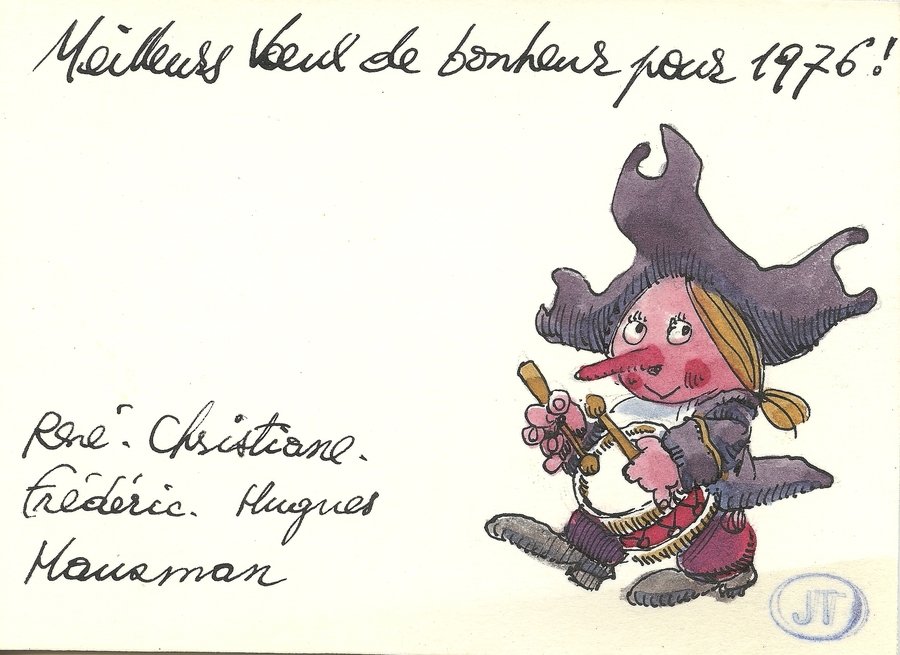 Meilleurs Vœux de bonheur pour 1976!
René. Christiane.
Frédéric. Hugues
Hausman
JT